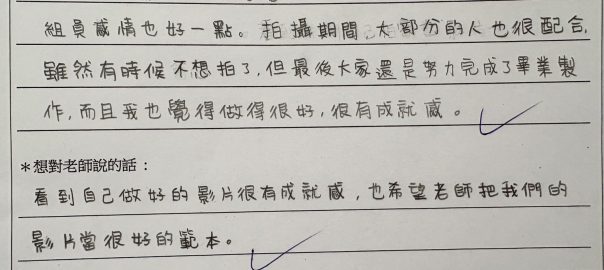 組員感情也好一點。拍攝期間,大部份的人也很配合,
雖然有時候不想拍了,但最後大家還是努力完成了畢業製
作,而且我也覺得做得很好,很有成就感。
*想對老師說的話:
看到自己做好的影片很有成就感,也希望老師把我們的
影片當很好的範本。